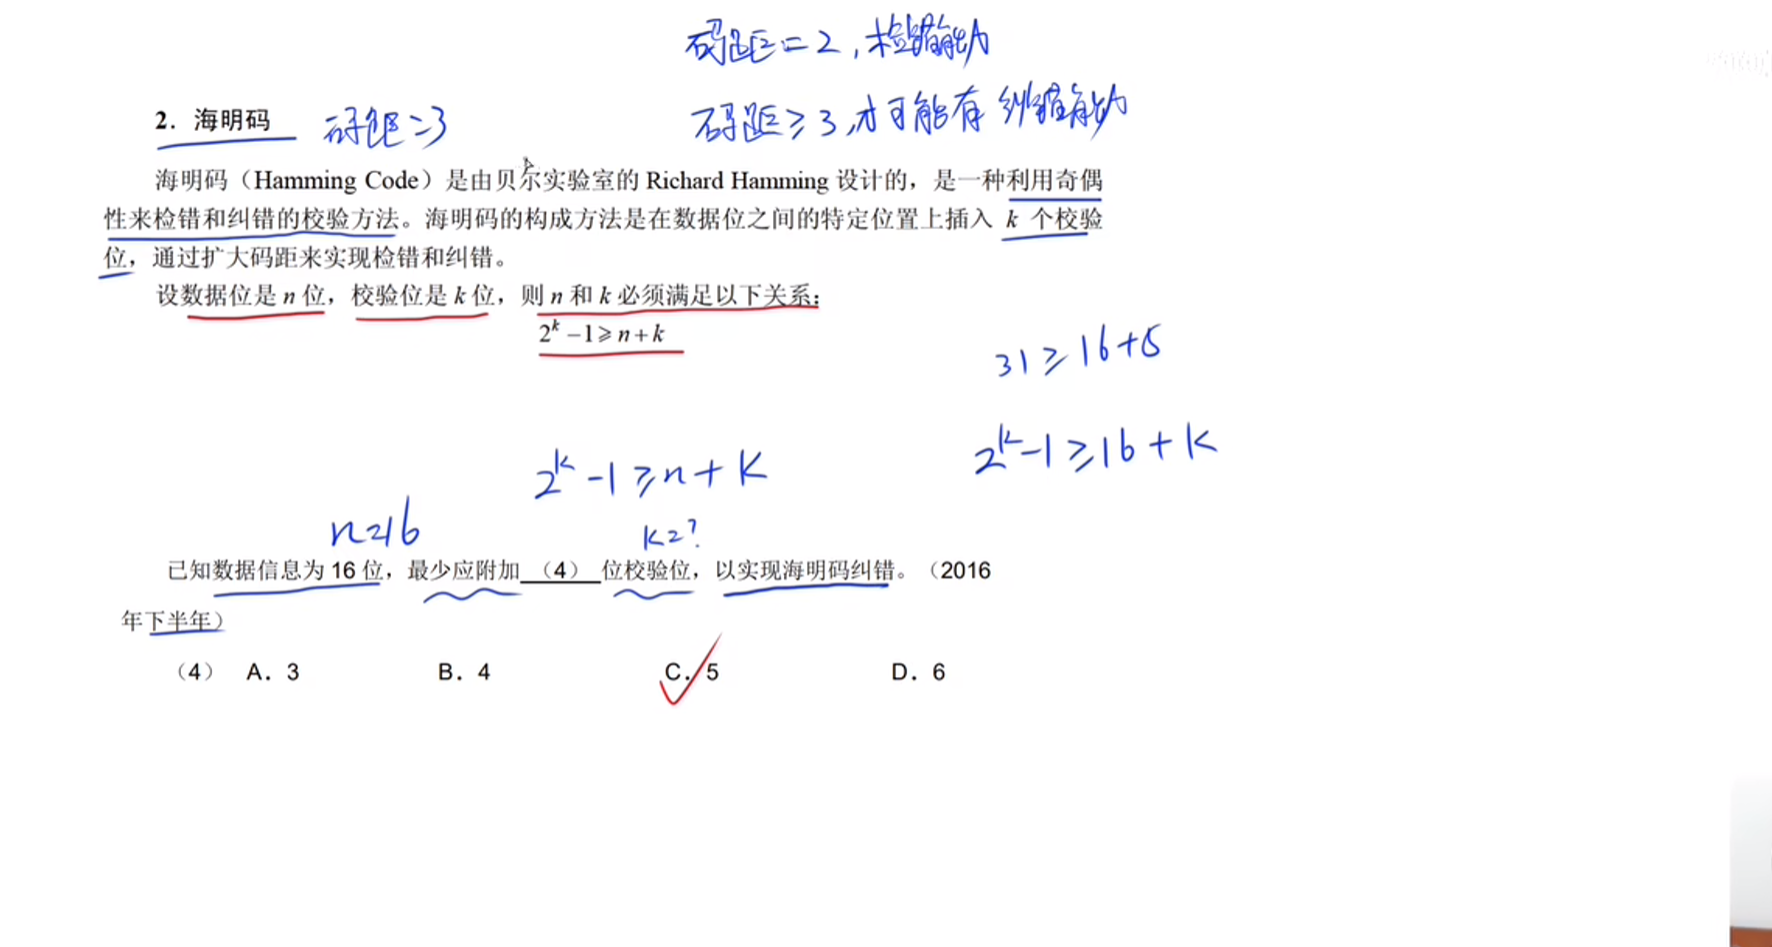 码距=2,检错能力
2. 海明码 码距=3
码距≥3,才可能有纠错能力
海明码（Hamming Code）是由贝尔实验室的 Richard Hamming 设计的，是一种利用奇偶
性来检错和纠错的校验方法。海明码的构成方法是在数据位之间的特定位置上插入 k 个校验
位，通过扩大码距来实现检错和纠错。
设数据位是 n 位，校验位是 k 位，则 n 和 k 必须满足以下关系：
2^k −1≥n+k
31≥16+5
2^k-1≥16+k
2^k-1≥n+k
n=16
k=?
已知数据信息为 16 位，最少应附加 （4） 位校验位，以实现海明码纠错。（2016
年下半年）
（4） A. 3 B. 4 C. 5 D. 6